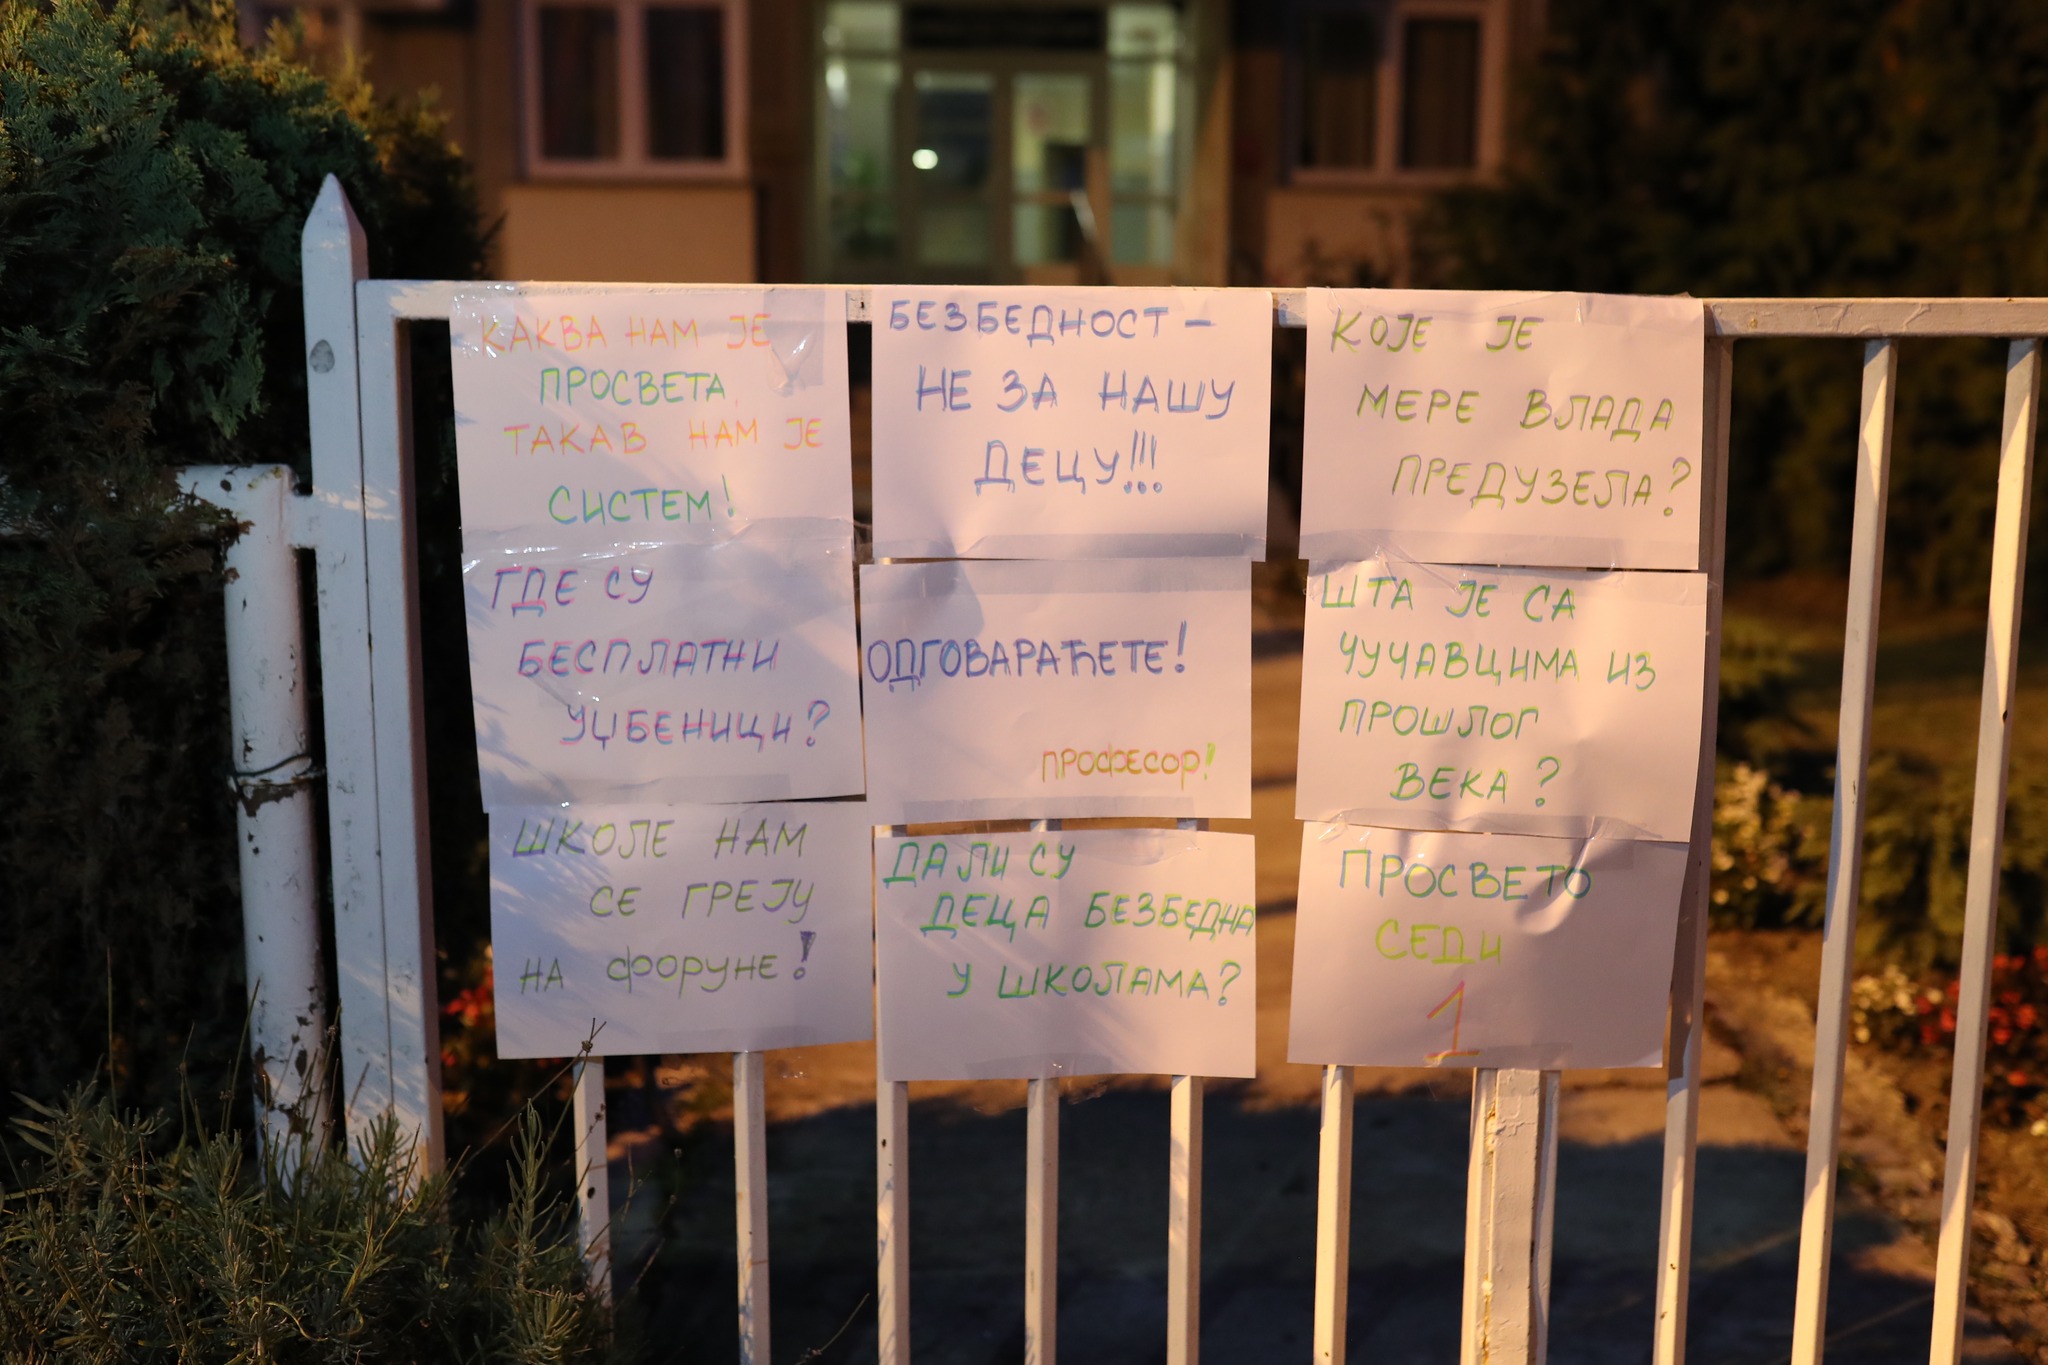 КАКВА НАМ ЈЕ
ПРОСВЕТА,
ТАКАВ НАМ ЈЕ
СИСТЕМ!
БЕЗБЕДНОСТ –
НЕ ЗА НАШУ
ДЕЦУ!!!
КОЈЕ ЈЕ
МЕРЕ ВЛАДА
ПРЕДУЗЕЛА?
ГДЕ СУ
БЕСПЛАТНИ
УЏБЕНИЦИ?
ОДГОВАРАЋЕТЕ!
ПРОФЕСОР!
ШТА ЈЕ СА
ЧУЧАВЦИМА ИЗ
ПРОШЛОГ
ВЕКА?
ШКОЛЕ НАМ
СЕ ГРЕЈУ
НА ФОРУНЕ!
ДА ЛИ СУ
ДЕЦА БЕЗБЕДНА
У ШКОЛАМА?
ПРОСВЕТО
СЕДИ
1